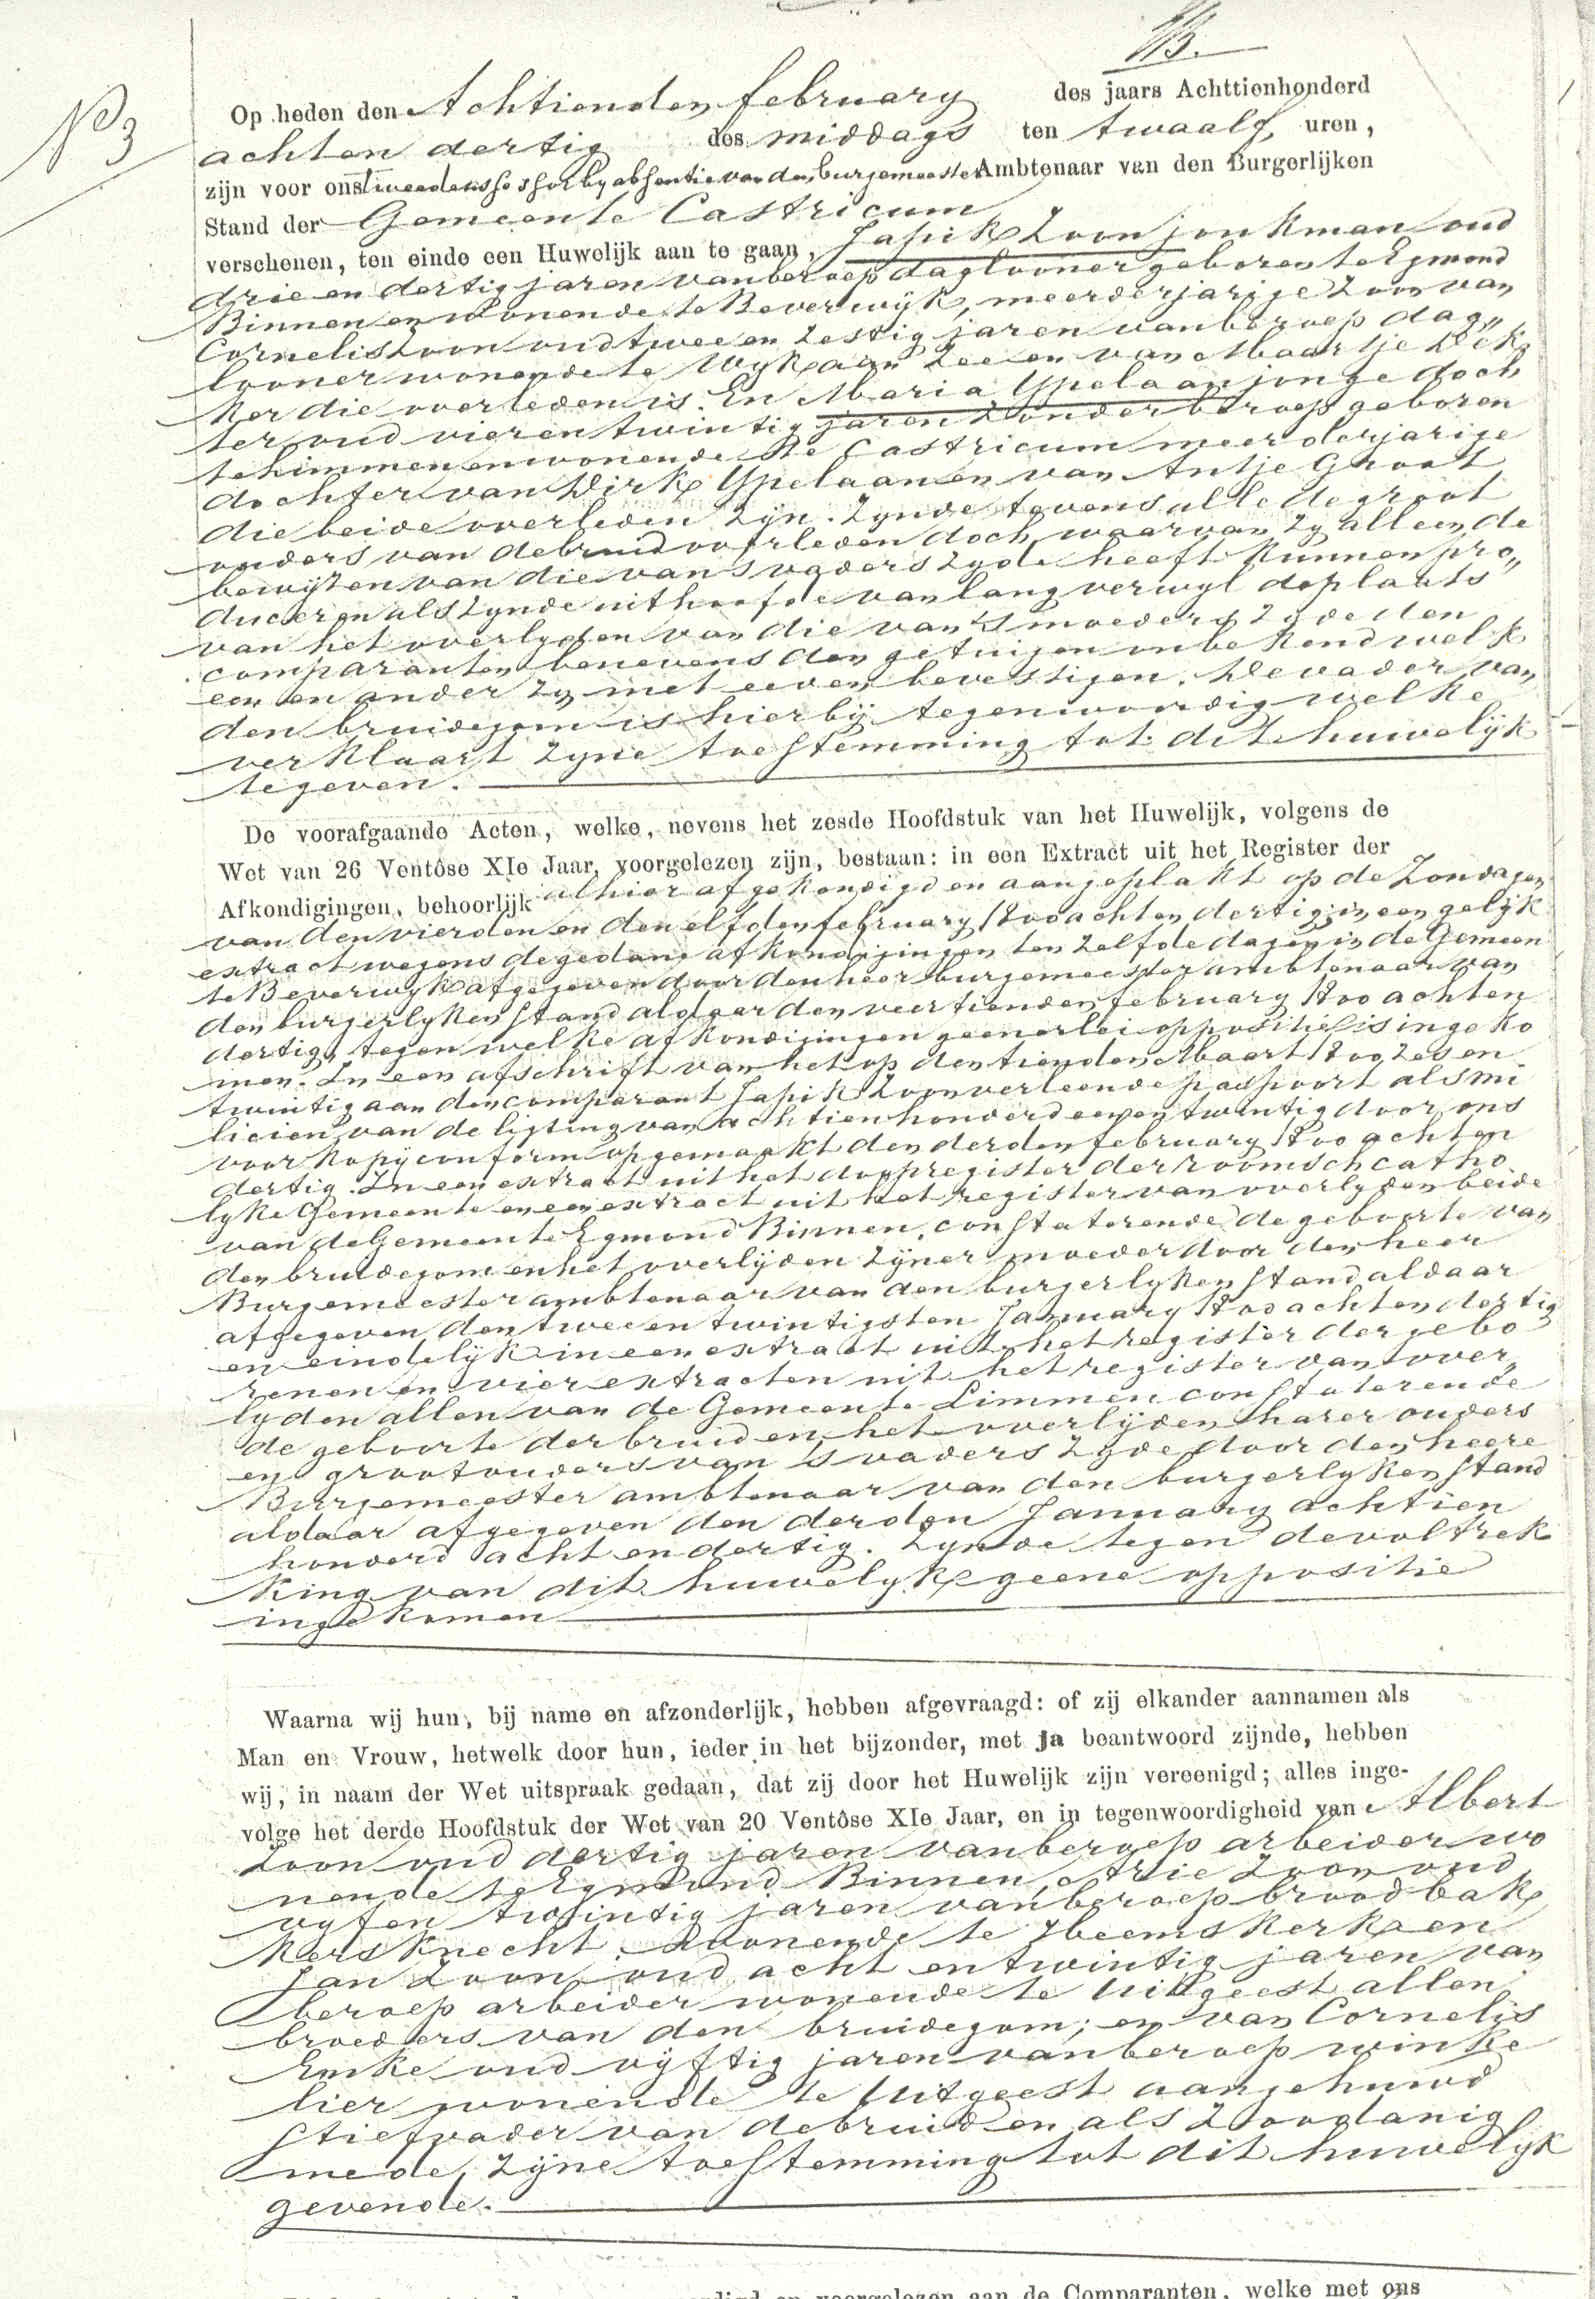 N° 3
Op heden den Achtienden february des jaars Achttienhonderd
achten dertig des middags ten twaalf uren,
zijn voor ons tweeden assessor by absentie van den burgemeester Ambtenaar van den Burgerlijken
Stand der Gemeente Castricum
verschenen, ten einde een Huwelijk aan te gaan, Japik Zoon jonkman oud
drie en dertig jaren van beroep daglooner geboren te Egmond
Binnen en wonende te Beverwijk, meerderjarige Zoon van
Cornelis Zoon oud twee en Zestig jaren van beroep dag„
looner wonende te Wyk aan Zee en van Maartje Dek„
ker die overleden is. En Maria Ypelaan jonge doch
ter oud vier en twintig jaren zonder beroep geboren
te Limmen en wonende te Castricum meerderjarige
dochter van Dirk Ypelaan en van Antje Groot
die beide overleden zijn. Zynde tevens alle de groot
ouders van de bruid overleden doch waarvan zy alleen de
bewijzen van die van 's vaders zyde heeft kunnen pro„
duceren als zynde uit hoofde van lang verwyl de plaats
van het overlyden van die van 's moeders zyde den
comparanten benevens den getuigen onbekend welk
een en ander zy met eeden bevestigen. De vader van
den bruidegom is hierbij tegenwoordig welke
verklaart zyne toestemming tot dit huwelijk
te geven.
De voorafgaande Acten, welke, nevens het zesde Hoofdstuk van het Huwelijk, volgens de
Wet van 26 Ventôse XIe Jaar, voorgelezen zijn, bestaan: in een Extract uit het Register der
Afkondigingen, behoorlijk alhier afgekondigd en aangeplakt op de Zondagen
van den vierden en den elfden february 1800 achten dertig; in een gelijk
extract wegens de gedane afkondigingen ten zelfde dagen in de Gemeen
te Beverwyk afgegeven door den heer burgemeester ambtenaar van
den burgerlyken stand aldaar den veertienden february 1800 achten
dertig, tegen welke afkondigingen geenerlei oppositie is ingeko
men. In een afschrift van het op den tienden Maart 1800 zes en
twintig aan den comparant Japik Zoon verleende paspoort als mi
licien van de ligting van achtienhonderd een en twintig door ons
voor kopij conform opgemaakt den derden february 1800 achten
dertig. In een extract uit het doopregister der roomsch catho
lyke Gemeente en een extract uit het register van overlyden beide
van de Gemeente Egmond Binnen, constaterende de geboorte van
den bruidegom en het overlijden zijner moeder door den heer
Burgemeester ambtenaar van den burgerlyken stand aldaar
afgegeven den twee en twintigsten January 1800 achten dertig
en eindelijk in een extract uit het register der gebo
renen en vier extracten uit het register van over„
lyden allen van de Gemeente Limmen constaterende
de geboorte der bruid en het overlijden harer ouders
en grootouders van 's vaders zyde door den heere
Burgemeester ambtenaar van den burgerlyken stand
aldaar afgegeven den derden January achtien
honderd acht en dertig. Zynde tegen de voltrek
king van dit huwelyk geene oppositie
ingekomen
Waarna wij hun, bij name en afzonderlijk, hebben afgevraagd: of zij elkander aannamen als
Man en Vrouw, hetwelk door hun, ieder in het bijzonder, met ja beantwoord zijnde, hebben
wij, in naam der Wet uitspraak gedaan, dat zij door het Huwelijk zijn vereenigd; alles inge-
volge het derde Hoofdstuk der Wet van 20 Ventôse XIe Jaar, en in tegenwoordigheid van Albert
Zoon oud dertig jaren van beroep arbeider wo
nende te Egmond Binnen, Arie Zoon oud
vyf en twintig jaren van beroep broodbak
kersknecht wonende te Heemskerk en
Jan Zoon oud acht en twintig jaren van
beroep arbeider wonende te Uitgeest allen
broeders van den bruidegom; en van Cornelis
Emke oud vijftig jaren van beroep winke
lier wonende te Uitgeest aangehuwd
stiefvader van de bruid en als zoodanig
mede zijne toestemming tot dit huwelyk
gevende.
voorgelezen aan de Comparanten, welke met ons